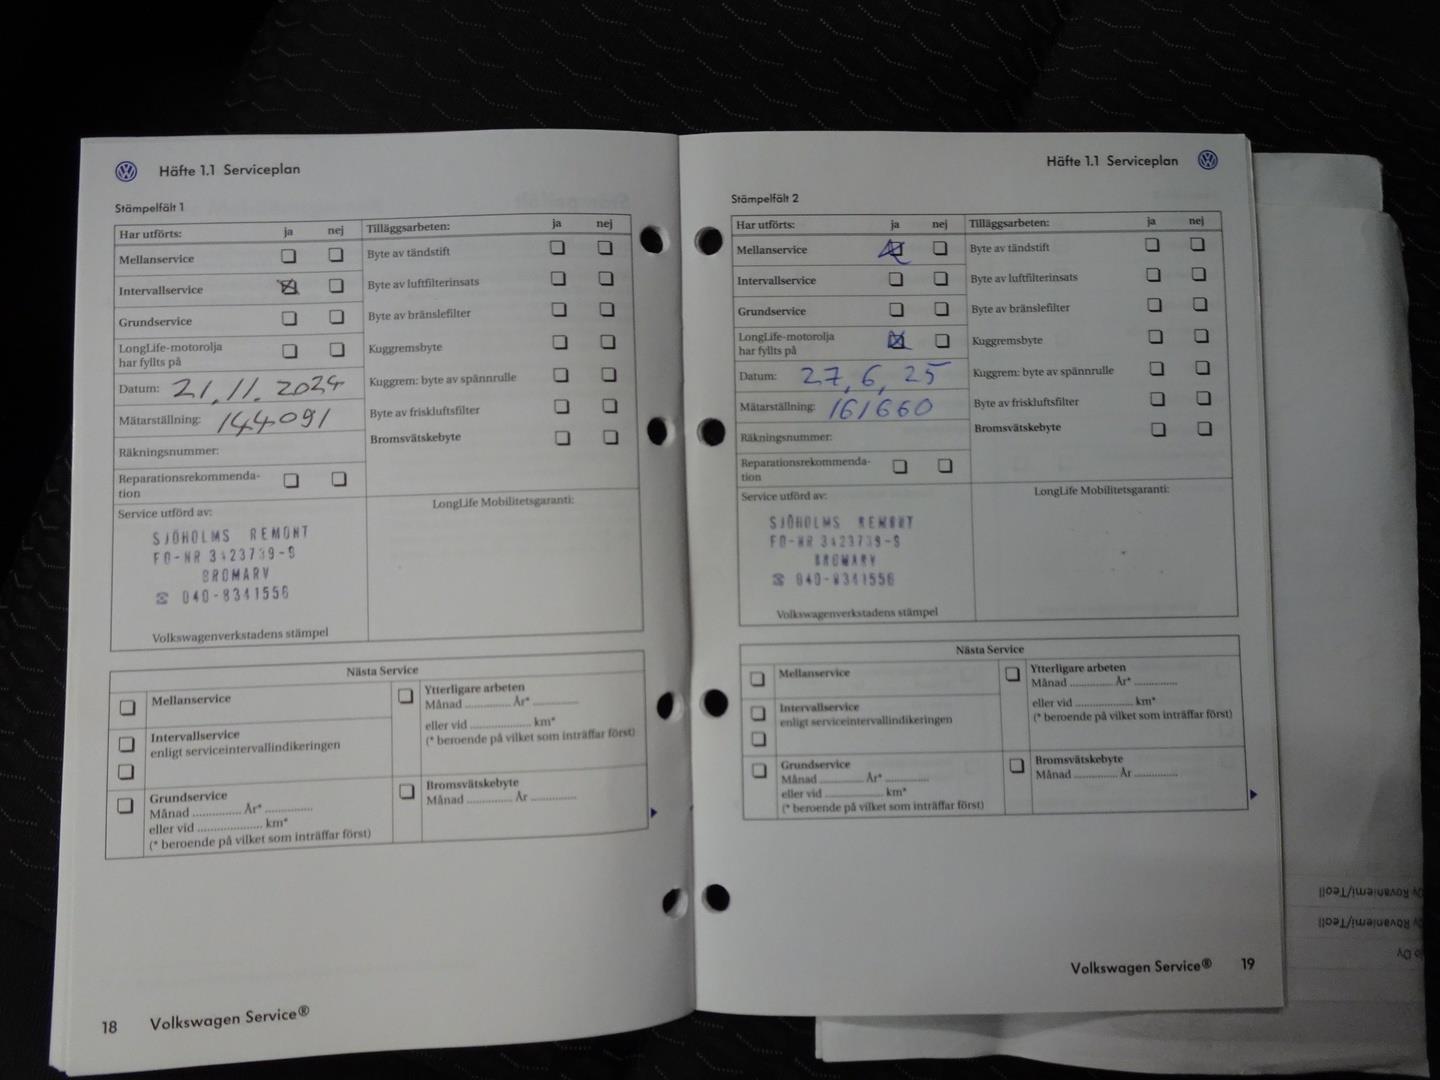 Häfte 1.1 Serviceplan
Stämpelfält 1
Har utförts: ja nej
Tilläggsarbeten: ja nej
Mellanservice
Byte av tändstift
Intervallservice
Byte av luftfilterinsats
Grundservice
Byte av bränslefilter
LongLife-motorolja
har fyllts på
Kuggremsbyte
Datum: 21.11.2024
Kuggrem: byte av spännrulle
Mätarställning: 144091
Byte av friskluftsfilter
Räkningsnummer:
Bromsvätskebyte
Reparationsrekommenda-
tion
Service utförd av:
LongLife Mobilitetsgaranti:
SJÖHOLMS REMONT
FO-NR 3423739-9
BROMARV
☎ 040-8341556
Volkswagenverkstadens stämpel
Nästa Service
Mellanservice
Ytterligare arbeten
Månad .............. År* ..............
eller vid .................... km*
(* beroende på vilket som inträffar först)
Intervallservice
enligt serviceintervallindikeringen
Grundservice
Månad .............. År* ..............
eller vid .................... km*
(* beroende på vilket som inträffar först)
Bromsvätskebyte
Månad .............. År ..............
18 Volkswagen Service®
Häfte 1.1 Serviceplan
Stämpelfält 2
Har utförts: ja nej
Tilläggsarbeten: ja nej
Mellanservice
Byte av tändstift
Intervallservice
Byte av luftfilterinsats
Grundservice
Byte av bränslefilter
LongLife-motorolja
har fyllts på
Kuggremsbyte
Datum: 27,6,25
Kuggrem: byte av spännrulle
Mätarställning: 161660
Byte av friskluftsfilter
Räkningsnummer:
Bromsvätskebyte
Reparationsrekommenda-
tion
Service utförd av:
LongLife Mobilitetsgaranti:
SJÖHOLMS REMONT
FO-NR 3423739-9
BROMARV
☎ 040-8341556
Volkswagenverkstadens stämpel
Nästa Service
Mellanservice
Ytterligare arbeten
Månad .............. År* ..............
eller vid .................... km*
(* beroende på vilket som inträffar först)
Intervallservice
enligt serviceintervallindikeringen
Grundservice
Månad .............. År* ..............
eller vid .................... km*
(* beroende på vilket som inträffar först)
Bromsvätskebyte
Månad .............. År ..............
Volkswagen Service® 19
Oy
Rovaniemi/Teoll
Rovaniemi/Teoll